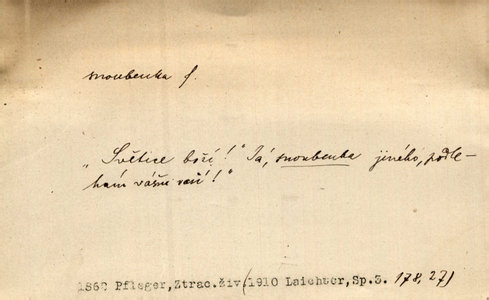 snoubenka f.
„Světice boží!“ Já, snoubenka jiného, podlé-
hám vášni
1862 Pfleger, Ztrac.živ(1910 Laichter, Sp.3. 178, 27)